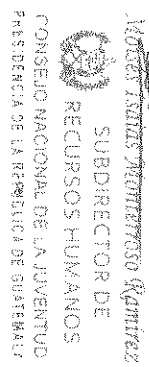 Moses Isaías Monterroso Ramírez
SUBDIRECTOR DE
RECURSOS HUMANOS
CONSEJO NACIONAL DE LA JUVENTUD
PRESIDENCIA DE LA REPÚBLICA DE GUATEMALA